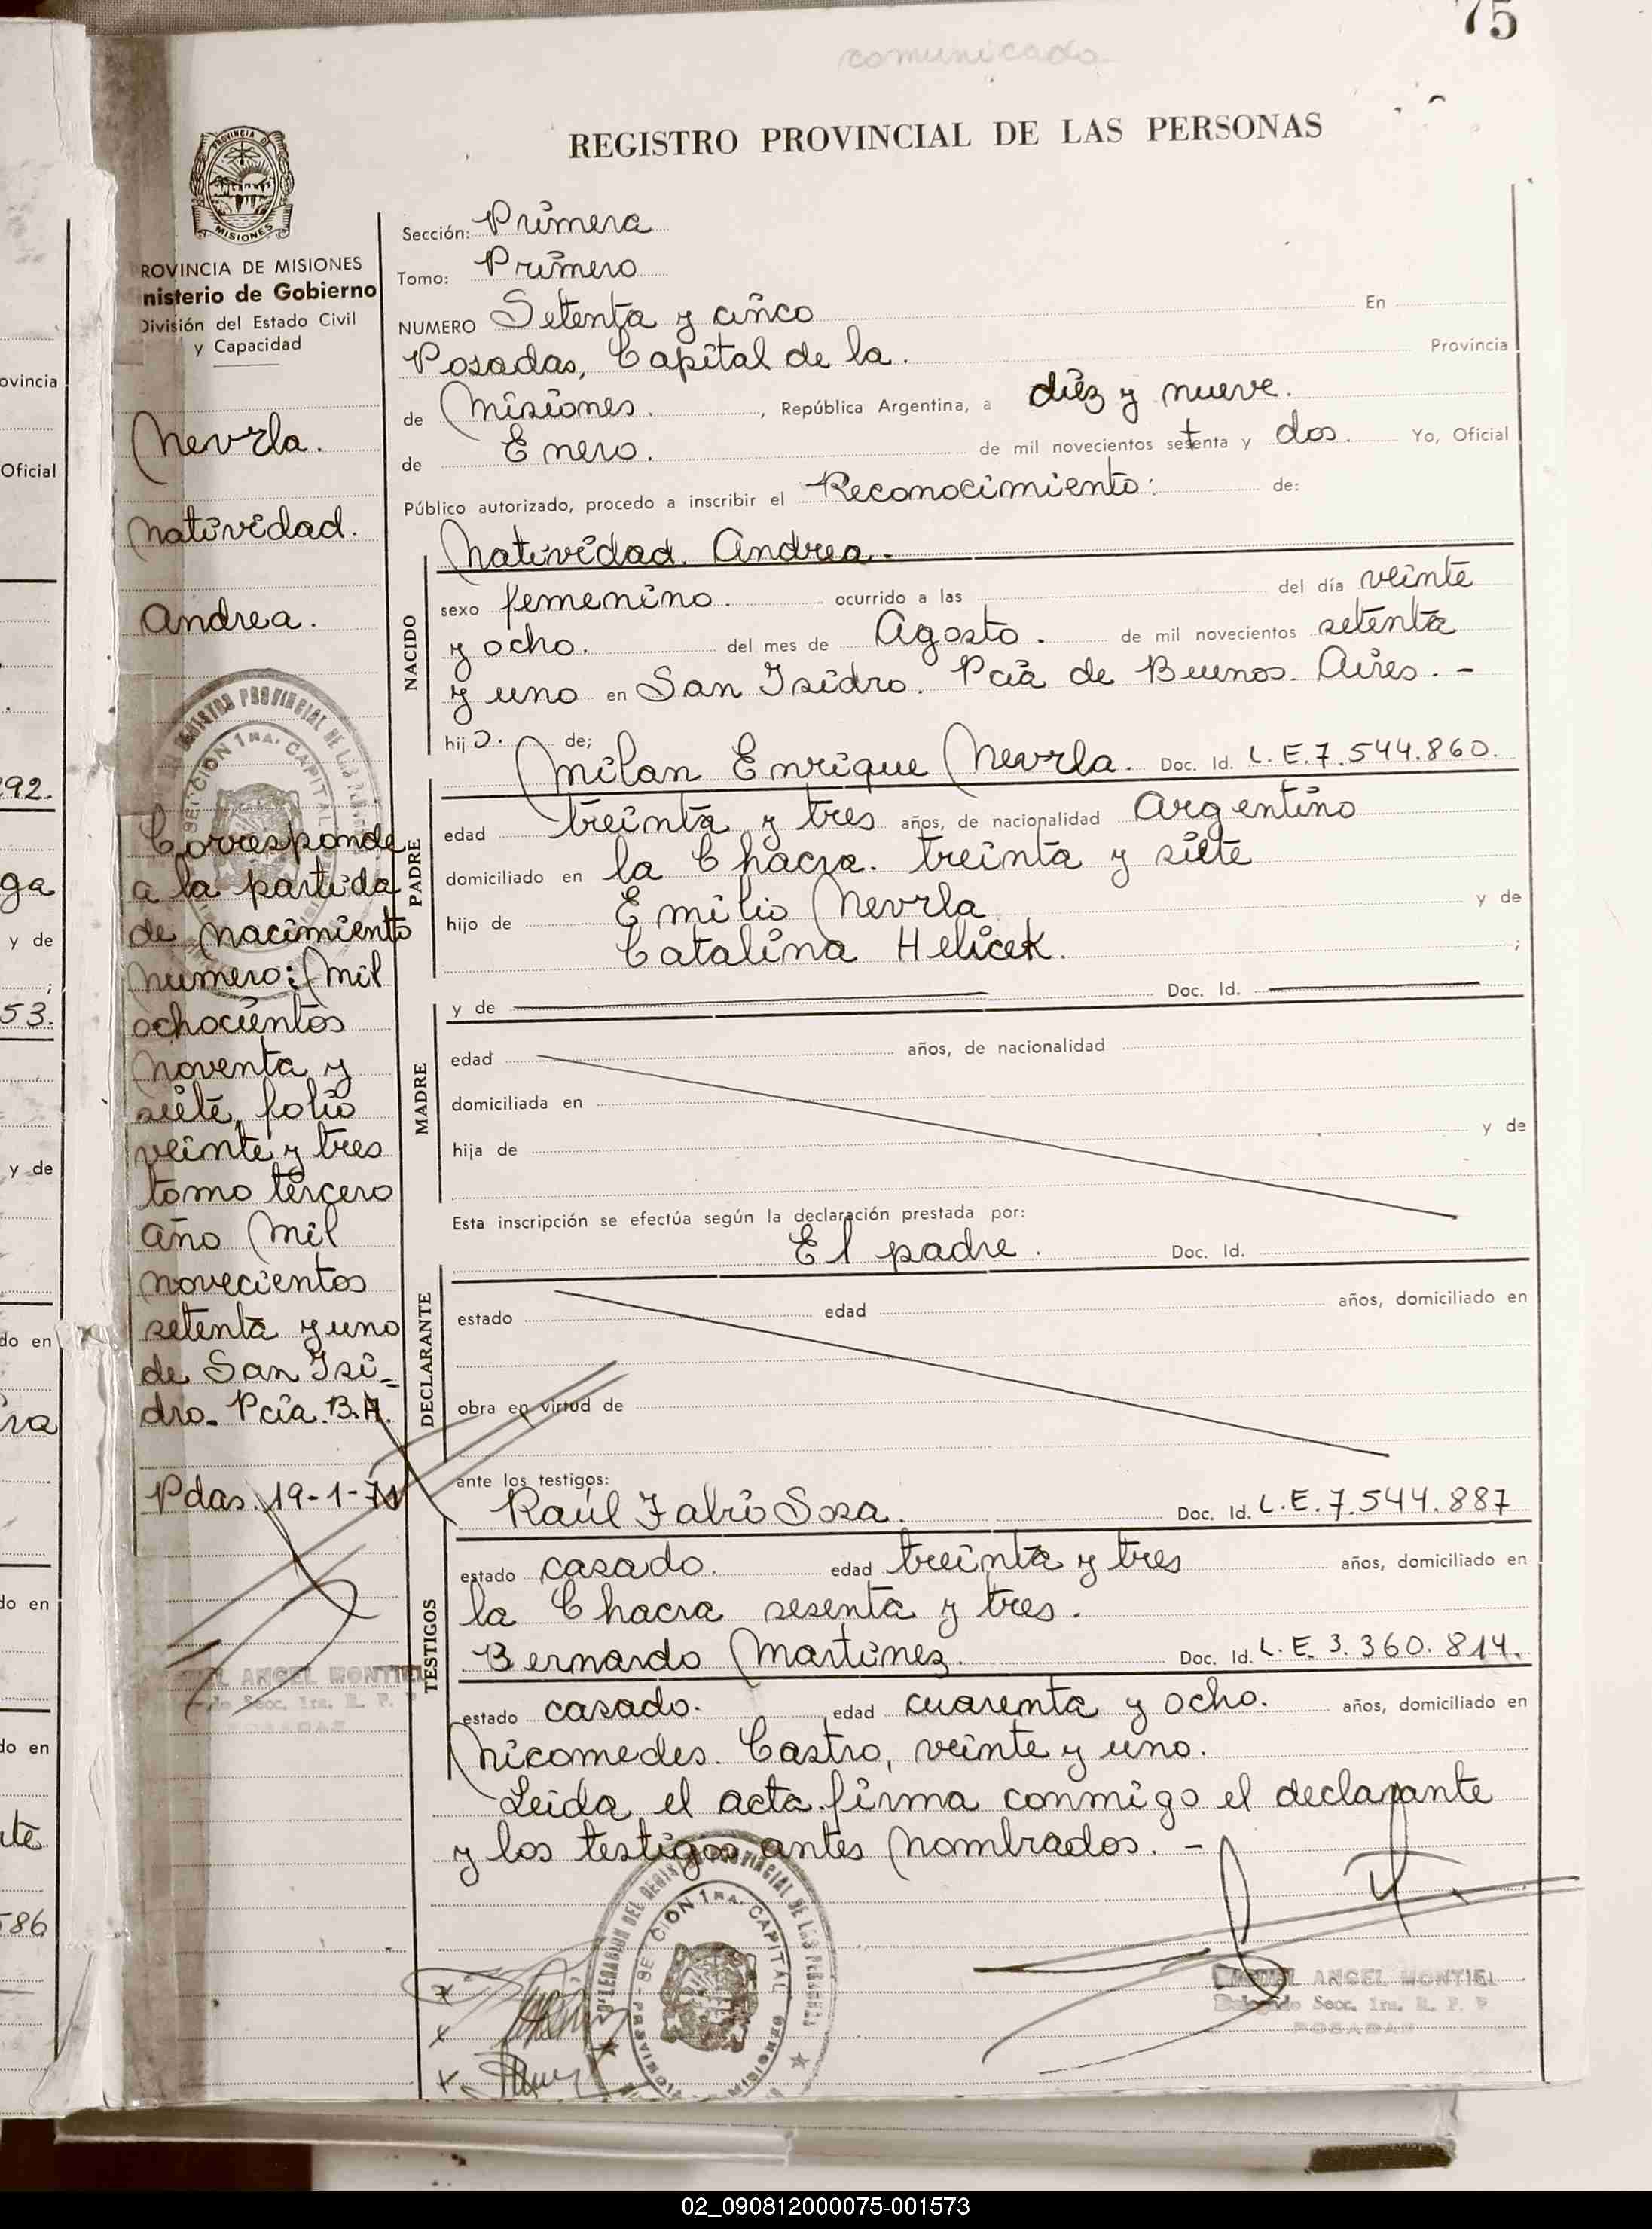 75
comunicado
REGISTRO PROVINCIAL DE LAS PERSONAS
PROVINCIA DE
MISIONES
ROVINCIA DE MISIONES
nisterio de Gobierno
División del Estado Civil
y Capacidad
Nevrla.
Natividad.
Andrea.
Corresponde
a la partida
de nacimiento
numero: mil
ochocientos
noventa y
siete, folio
veinte y tres
tomo tercero
año mil
novecientos
setenta y uno
de San Isi_
dro. Pcia. B.A.
Pdas. 19-1-71
ANGEL MONTIEL
Secc. 1ra. R. P. P
POSADAS
Sección: Primera
Tomo: Primero
NUMERO Setenta y cinco En
Posadas, Capital de la. Provincia
de Misiones. , República Argentina, a diez y nueve.
de Enero. de mil novecientos setenta y dos. Yo, Oficial
Público autorizado, procedo a inscribir el Reconocimiento: de:
Natividad. Andrea.-
NACIDO
sexo femenino. ocurrido a las del día veinte
y ocho. del mes de Agosto. de mil novecientos setenta
y uno en San Isidro. Pcia de Buenos. Aires. -
hij a. de;
Milan Enrique Nevrla. Doc. Id. L.E. 7.544.860.
PADRE
edad treinta y tres años, de nacionalidad Argentino
domiciliado en la Chacra. treinta y siete
hijo de Emilio Nevrla y de
Catalina Helicek. ;
y de Doc. Id.
MADRE
edad años, de nacionalidad
domiciliada en
hija de y de
Esta inscripción se efectúa según la declaración prestada por:
El padre. Doc. Id.
DECLARANTE
estado edad años, domiciliado en
obra en virtud de
ante los testigos:
Raúl Fabio Sosa. Doc. Id. L.E. 7.544.887
TESTIGOS
estado casado. edad treinta y tres años, domiciliado en
la Chacra sesenta y tres.
Bernardo Martinez. Doc. Id. L.E. 3.360.814.
estado casado. edad cuarenta y ocho. años, domiciliado en
Nicomedes. Castro, veinte y uno.
Leida el acta firma conmigo el declarante
y los testigos antes nombrados. -
DELEGACION DEL REGISTRO PROVINCIAL DE LAS PERSONAS
SECCION 1RA. CAPITAL
ANGEL MONTIEL
Delegado Secc. 1ra. R. P. P
POSADAS
ovincia
Oficial
92.
ga
y de
;
53.
y de
do en
do en
do en
586
02_090812000075-001573